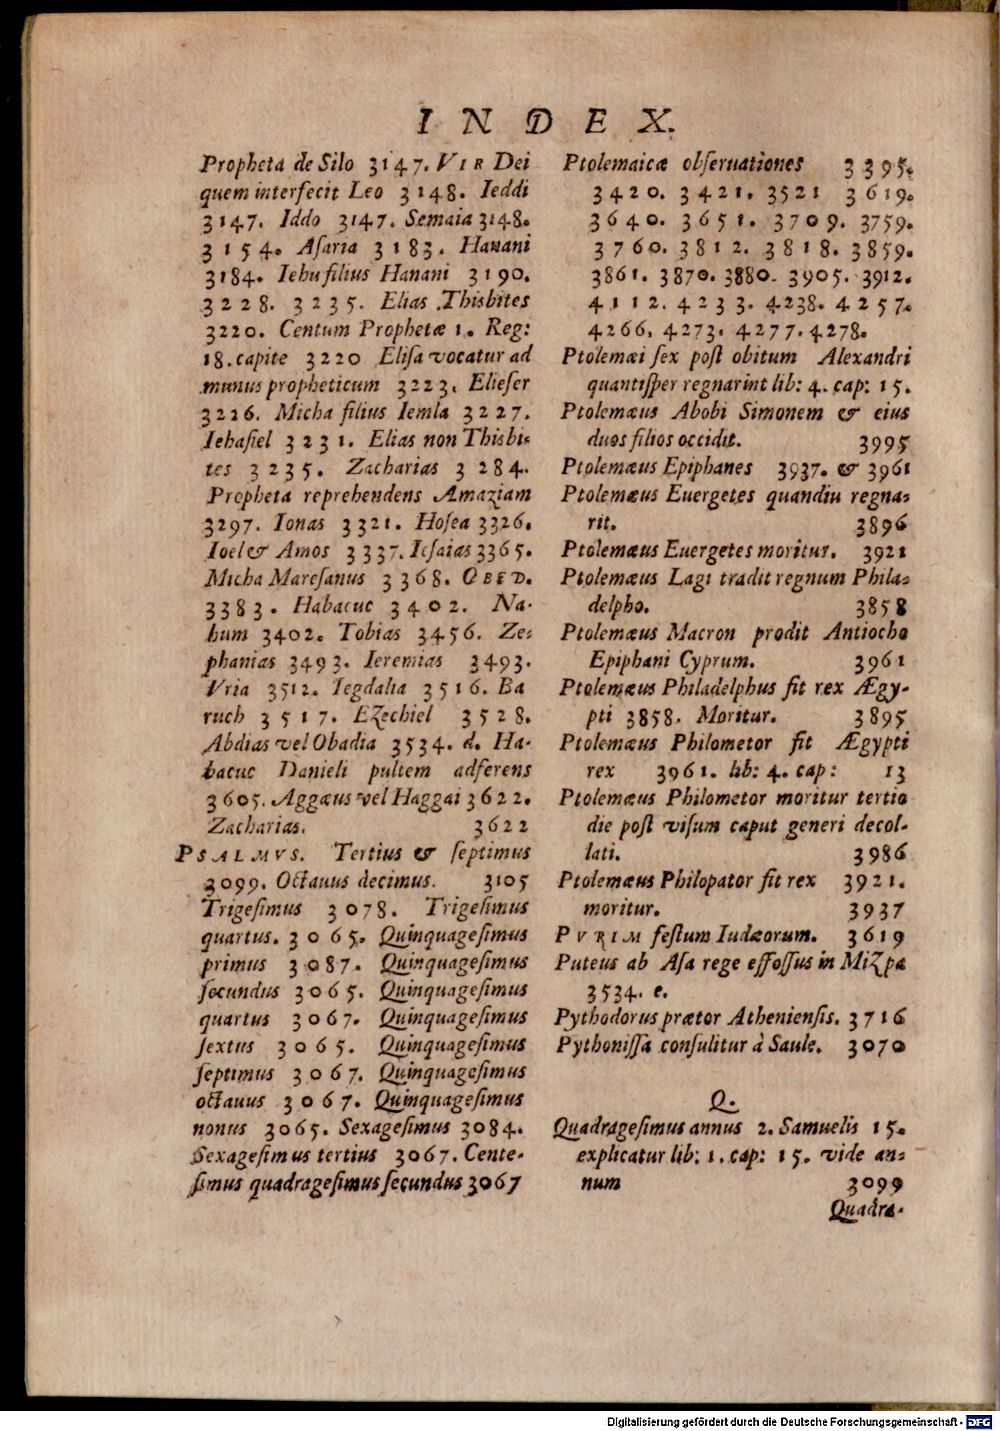 INDEX.
Propheta de Silo 3147. VIR Dei
quem interfecit Leo 3148. Ieddi
3147. Iddo 3147. Semaia 3148.
3154. Asaria 3183. Hanani
3184. Iehu filius Hanani 3190.
3228. 3235. Elias Thisbites
3220. Centum Prophetæ 1. Reg:
18. capite 3220 Elisa vocatur ad
munus propheticum 3223. Elieser
3226. Micha filius Iemla 3227.
Iehasiel 3231. Elias non Thisbi-
tes 3235. Zacharias 3284.
Propheta reprehendens Amaziam
3297. Ionas 3321. Hosea 3326.
Ioel & Amos 3337. Iesaias 3365.
Micha Maresanus 3368. OBED.
3383. Habacuc 3402. Na-
hum 3402. Tobias 3456. Ze-
phanias 3493. Ieremias 3493.
Vria 3512. Iegdalia 3516. Ba
ruch 3517. EZechiel 3528.
Abdias vel Obadia 3534. d. Ha-
bacuc Danieli pultem adferens
3605. Aggæus vel Haggai 3622.
Zacharias. 3622
PSALMVS. Tertius & septimus
3099. Octauus decimus. 3105
Trigesimus 3078. Trigesimus
quartus. 3065. Quinquagesimus
primus 3087. Quinquagesimus
secundus 3065. Quinquagesimus
quartus 3067. Quinquagesimus
sextus 3065. Quinquagesimus
septimus 3067. Quinquagesimus
octauus 3067. Quinquagesimus
nonus 3065. Sexagesimus 3084.
Sexagesimus tertius 3067. Cente-
simus quadragesimus secundus 3067
Ptolemaicæ obseruationes 3395.
3420. 3421. 3521 3619.
3640. 3651. 3709. 3759.
3760. 3812. 3818. 3859.
3861. 3870. 3880. 3905. 3912.
4112. 4233. 4238. 4257.
4266, 4273. 4277. 4278.
Ptolemæi sex post obitum Alexandri
quantisper regnarint lib: 4. cap: 15.
Ptolemæus Abobi Simonem & eius
duos filios occidit. 3995
Ptolemæus Epiphanes 3937. & 3961
Ptolemæus Euergetes quandiu regna-
rit. 3896
Ptolemæus Euergetes moritur. 3921
Ptolemæus Lagi tradit regnum Phila-
delpho. 3858
Ptolemæus Macron prodit Antiocho
Epiphani Cyprum. 3961
Ptolemæus Philadelphus fit rex Ægy-
pti 3858. Moritur. 3895
Ptolemæus Philometor fit Ægypti
rex 3961. lib: 4. cap: 13
Ptolemæus Philometor moritur tertio
die post visum caput generi decol-
lati. 3986
Ptolemæus Philopator fit rex 3921.
moritur. 3937
PVRIM festum Iudæorum. 3619
Puteus ab Asa rege effossus in MiZpa
3534. e.
Pythodorus prætor Atheniensis. 3716
Pythonissa consulitur à Saule. 3070
Q.
Quadragesimus annus 2. Samuelis 15.
explicatur lib: 1. cap: 15. vide an-
num 3099
Quadra-
Digitalisierung gefördert durch die Deutsche Forschungsgemeinschaft - DFG